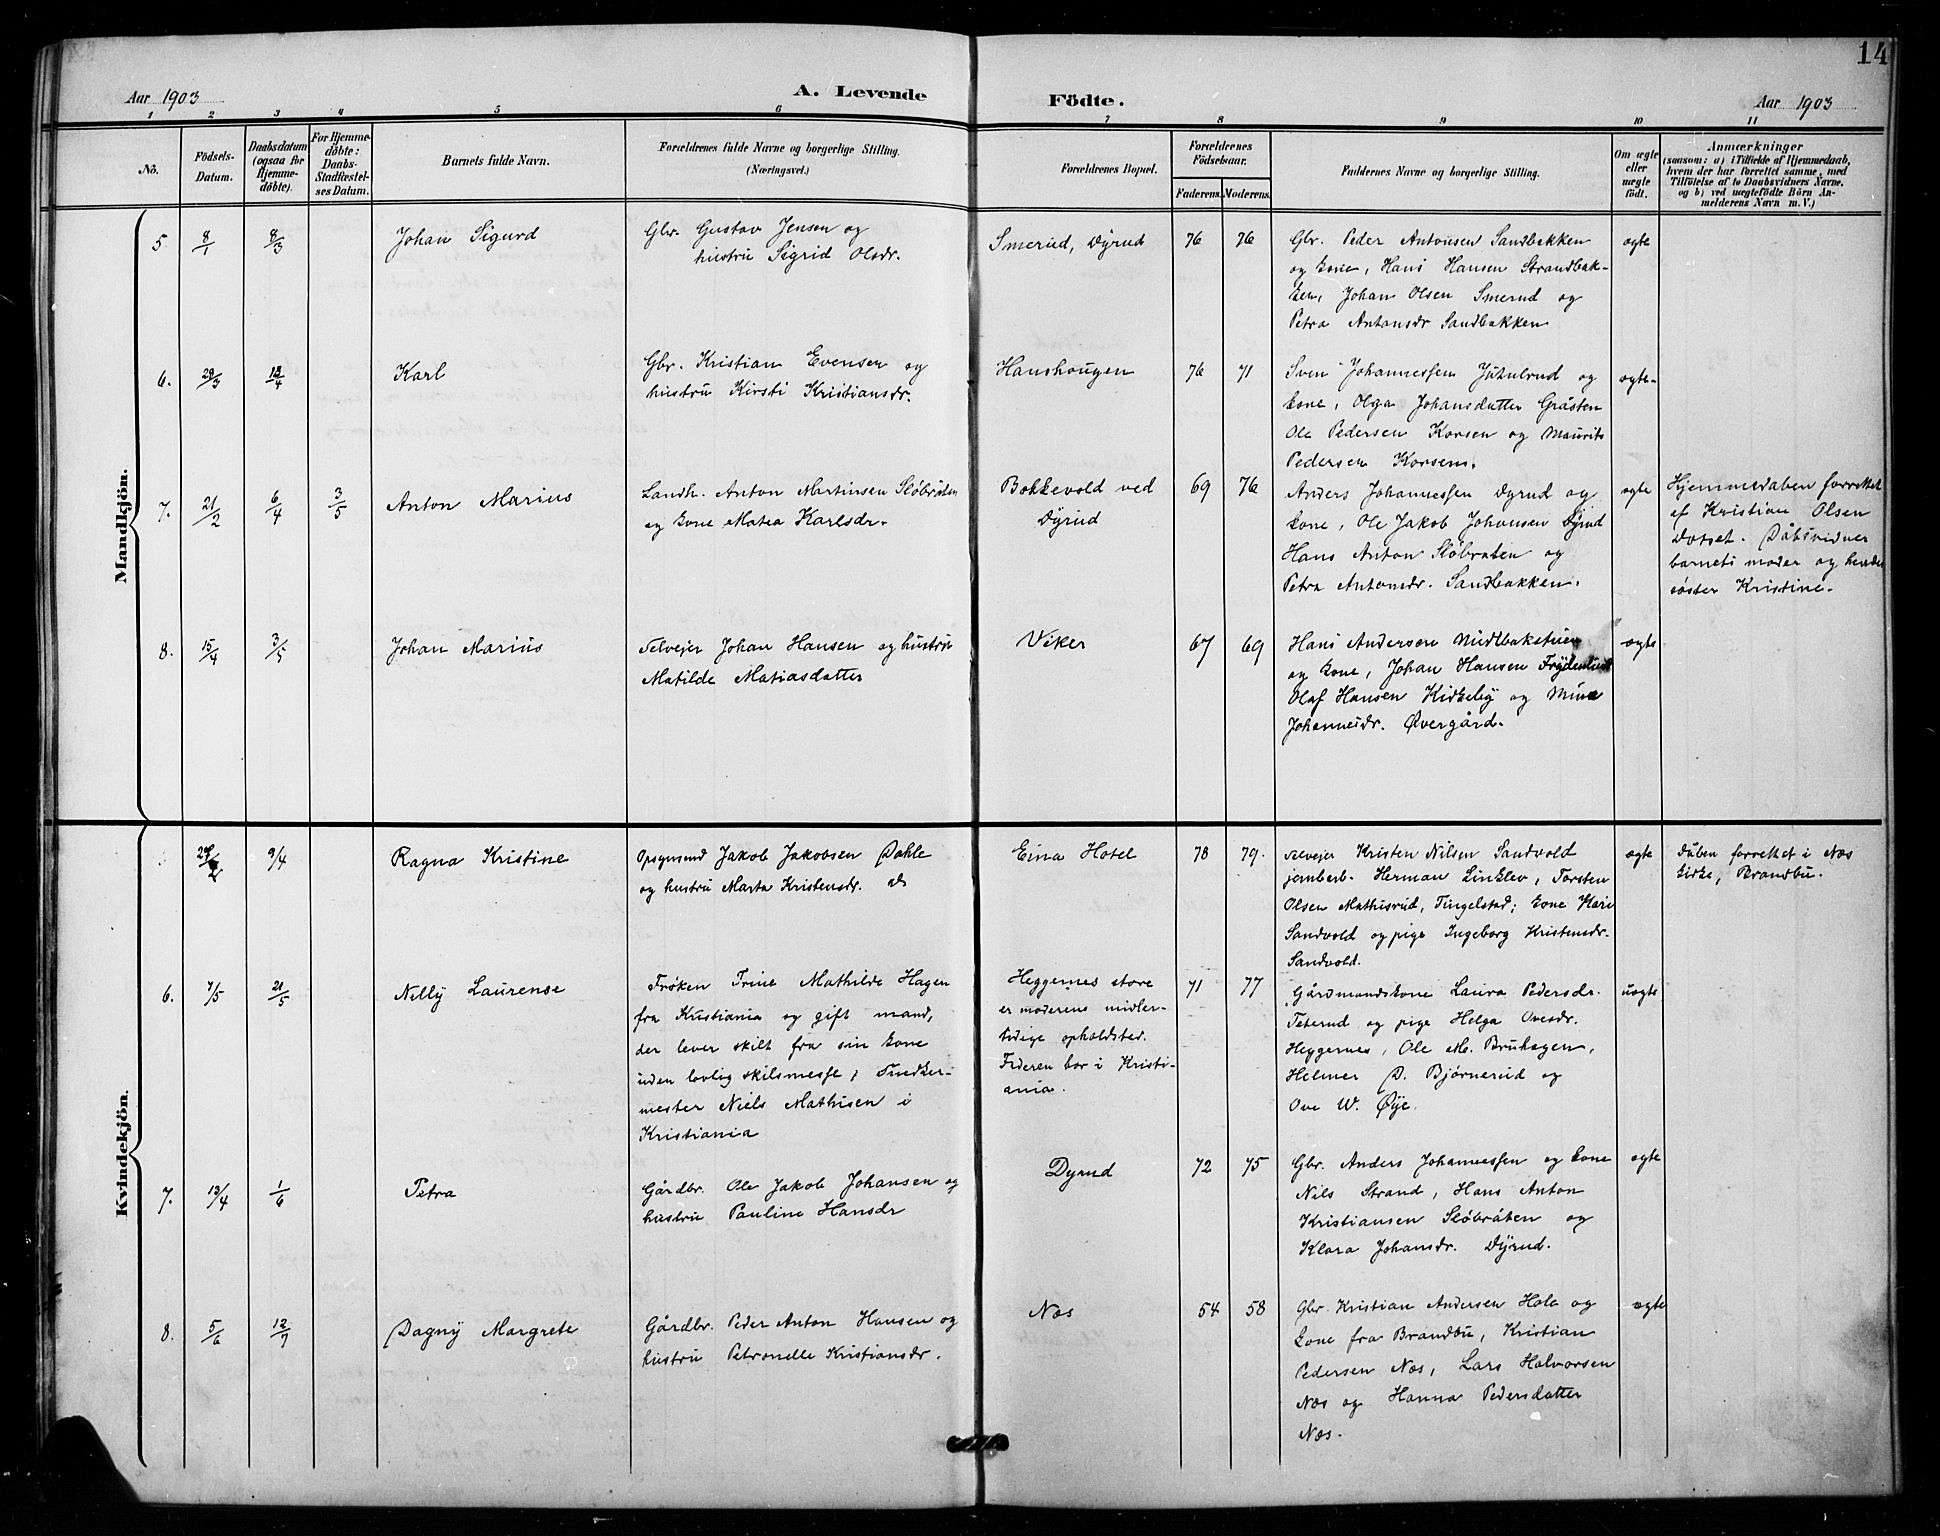 14
Aar 1903
A. Levende
Födte.
Aar 1903
1 2 3 4 5 6 7 8 9 10 11
No.
Födsels-
Datum.
Daabsdatum
(ogsaa for
Hjemme-
döbte).
For Hjemme-
döbte:
Daabs-
Stadfæstel-
ses Datum.
Barnets fulde Navn.
Forældrenes fulde Navne og borgerlige Stilling.
(Næringsvei.)
Forældrenes Bopæl.
Forældrenes
Födselsaar.
Faderens. Moderens.
Faddernes Navne og borgerlige Stilling.
Om ægte
eller
uægte
födt.
Anmærkninger
(saasom: a) i Tilfælde af Hjemmedaab,
hvem der har forrettet samme, med
Tilföielse af to Daabsvidners Navne.
og b) ved uægtefödte Börn An-
melderens Navn m. V.)
Mandkjön.
5. 8/1 8/3
Johan Sigurd
Gbr. Gustav Jensen og
hustru Sigrid Olsdr.
Smerud, Dyrud
76 76
Gbr. Peder Antonsen Sandbakken
og kone, Hans Hansen Strandbak-
ken, Johan Olsen Smerud og
Petra Antonsdr Sandbakken
ægte
6. 29/3 13/4
Karl
Gbr. Kristian Evensen og
hustru Kirsti Kristiansdr.
Hanshougen
76 71
Sven Johannessen Jutulrud og
kone, Olga Johansdatter Gråsten
Ole Pedersen Korsen og Maurits
Pedersen Korsen.
ægte
7. 21/2 6/4 3/5
Anton Marius
Landh. Anton Martinsen Sløbråten
og kone Matea Karlsdr.
Bokkevold ved
Dyrud
69 76
Anders Johannessen Dyrud og
kone, Ole Jakob Johansen Dyrud
Hans Anton Sløbraten og
Petra Antonsdr. Sandbakken.
ægte
Hjemmedåben forrettet
af Kristian Olsen
Dåbsvidner
barnets moder og hendes
søster Kristine.
8. 15/4 3/5
Johan Marius
Selvejer Johan Hansen og hustru
Matilde Matiasdatter
Viker
67 69
Hans Andersen Midtbakstuen
og kone, Johan Hansen Frydenlund
Olaf Hansen Kirkeby og Mina
Johannesdr. Øvergård.
ægte
Kvindekjön.
9/4
Ragna Kristine
Opsynsmd Jakob Jakobsen Dahle
og hustru Marta Kristensdr. ds
Eina Hotel
78 79.
Selvejer Kristen Nilsen Sandvold
jernberb. Herman Linkløv, Torsten
Olsen Mathisrud, Tingelstad; kone Kari
Sandvold og pige Ingeborg Kristensdr.
Sandvold.
ægte
Dåben forrettet i Næs
kirke, Brandbu.
6. 7/5 21/5
Nelly Laurense
Frøken Trine Mathilde Hagen
fra Kristiania og gift mand,
der lever skilt fra sin kone
uden lovlig skilsmesse, Snedker-
mester Niels Mathisen i
Kristiania
Heggernes store
er moderens midler-
tidige opholdsted.
Faderen bor i Kristi-
ania.
71 77
Gårdmandskone Laura Pedersdr.
Teterud og pige Helga Ovesdr.
Heggernes, Ole M. Bruhagen,
Helmer D. Bjørnerud og
Ove W. Øye.
uægte
7. 13/4 1/6
Petra
Gårdbr. Ole Jakob Johansen og
hustru Pauline Hansdr
Dyrud
72 75
Gbr. Anders Johannessen og kone
Nils Strand, Hans Anton
Kristiansen Sløbråten og
Klara Johansdr. Dyrud.
ægte
8. 5/6 12/7
Dagny Margrete
Gårdbr. Peder Anton Hansen og
hustru Petronelle Kristiansdr.
Næs
54 58
Gbr. Kristian Andersen Hole og
kone fra Brandbu, Kristian
Pedersen Næs, Lars Halvorsen
Næs og Hanna Pedersdatter
Næs.
ægte